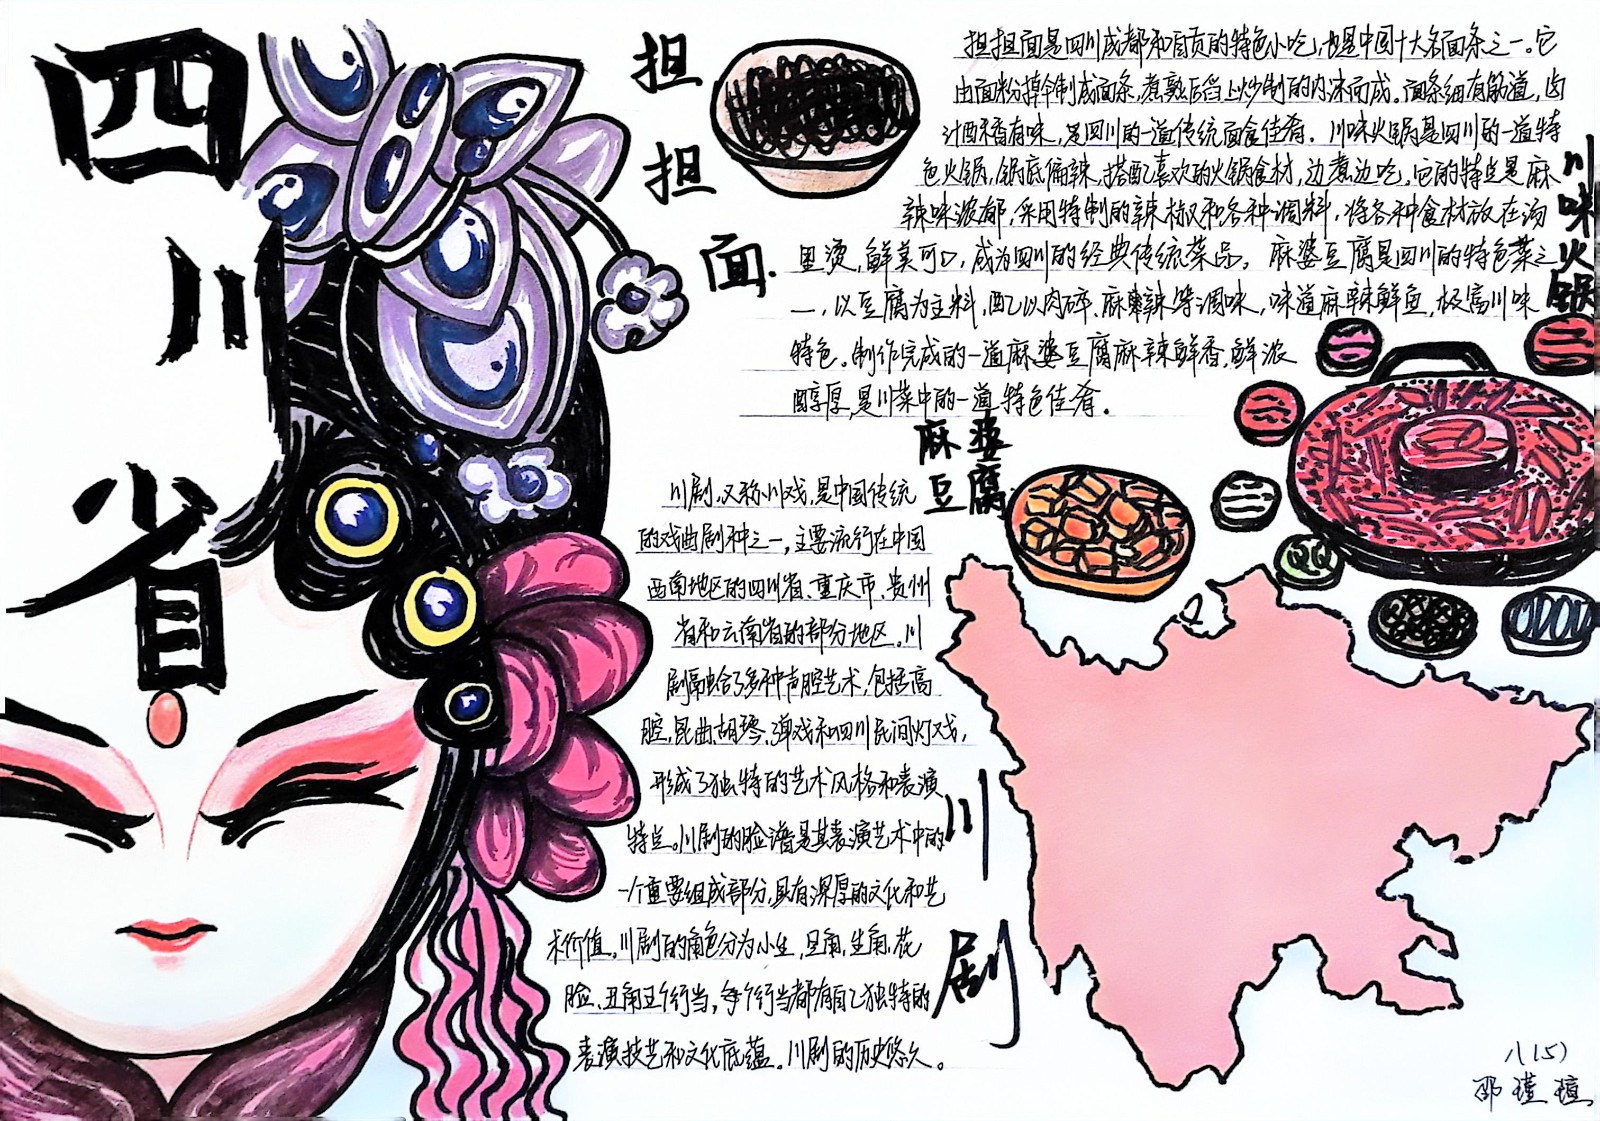 四
川
省
担
担
面
担担面是四川成都和自贡的特色小吃,也是中国十大名面条之一。它
由面粉擀制成面条,煮熟后舀上炒制的肉沫而成。面条细有筋道,卤
汁酥香有味,是四川的一道传统面食佳肴。川味火锅是四川的一道特
色火锅,锅底偏辣,搭配喜欢的火锅食材,边煮边吃,它的特点是麻
辣味浓郁,采用特制的辣椒和各种调料,将各种食材放在汤
里烫,鲜美可口,成为四川的经典传统菜品。麻婆豆腐是四川的特色菜之
一,以豆腐为主料,配以肉碎、麻辣等调味,味道麻辣鲜鱼,极富川味
特色。制作完成的一道麻婆豆腐麻辣鲜香,鲜浓
醇厚,是川菜中的一道特色佳肴。
川
味
火
锅
麻婆
豆腐
川剧,又称川戏,是中国传统
的戏曲剧种之一,主要流行在中国
西南地区的四川省、重庆市、贵州
省和云南省的部分地区。川
剧融合了多种声腔艺术,包括高
腔,昆曲、胡琴、弹戏和四川民间灯戏,
形成了独特的艺术风格和表演
特点。川剧的脸谱是其表演艺术中的
一个重要组成部分,具有深厚的文化和艺
术价值。川剧的角色分为小生,旦角,生角,花
脸、丑角五个行当,每个行当都有自己独特的
表演技艺和文化底蕴。川剧的历史悠久。
川
剧
八(5)
邵瑾瑄